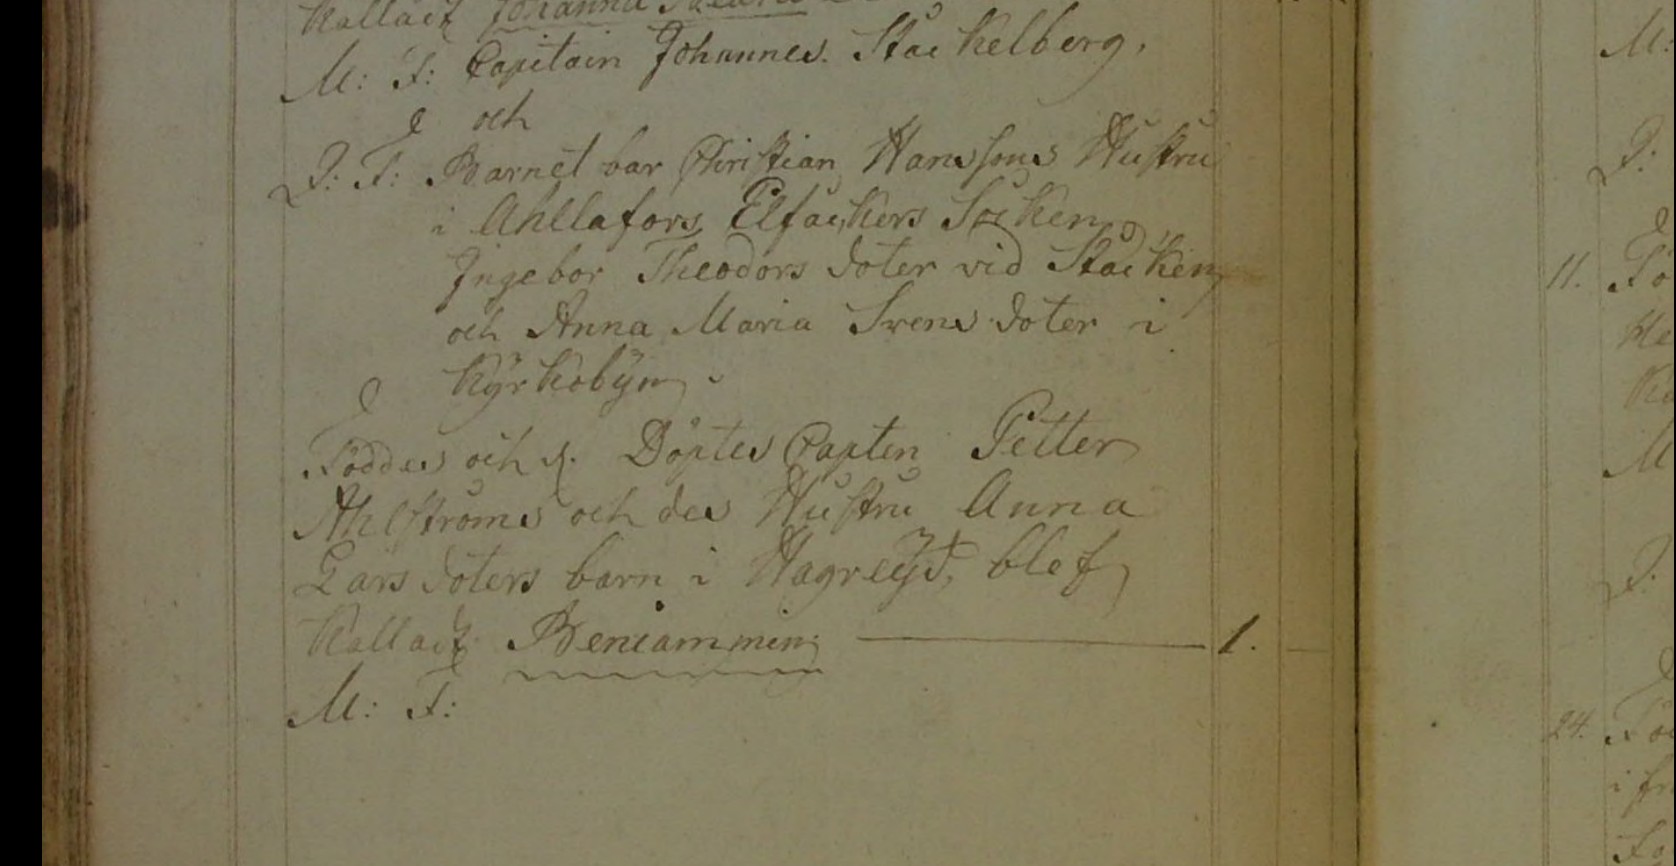 Kallact Johanna
M: F: Capitain Johannes. Stackelberg.
och
Q: F: Barnet bar Christian Hanssons Hustru
i Ahllafors Elfåckers Socken,
Ingebor Theodors doter vid Stacken
och Anna Maria Svens doter i
Kÿrkobÿn.
Föddes och d. Döptes Capten Petter
Ahlströms och des Hustru Anna
Lars doters barn i Hagreÿd, blef
Kallact Beniammin 1.
M: F:
M:
Q:
11. Fö
He
Ka
M
Q:
24. Fö
i fr
Fa